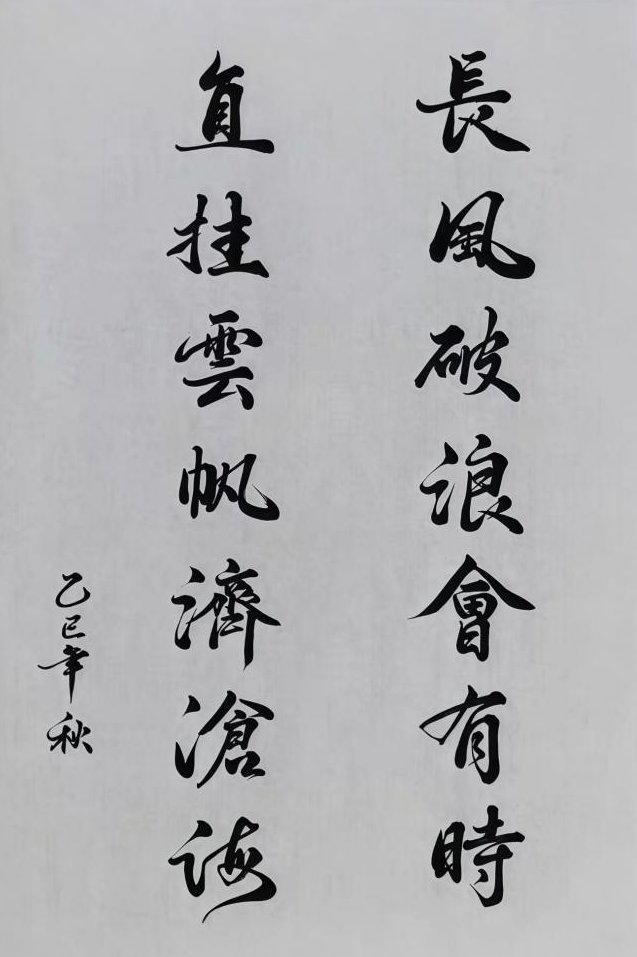 長風破浪會有時
直挂雲帆濟滄海
乙巳年秋